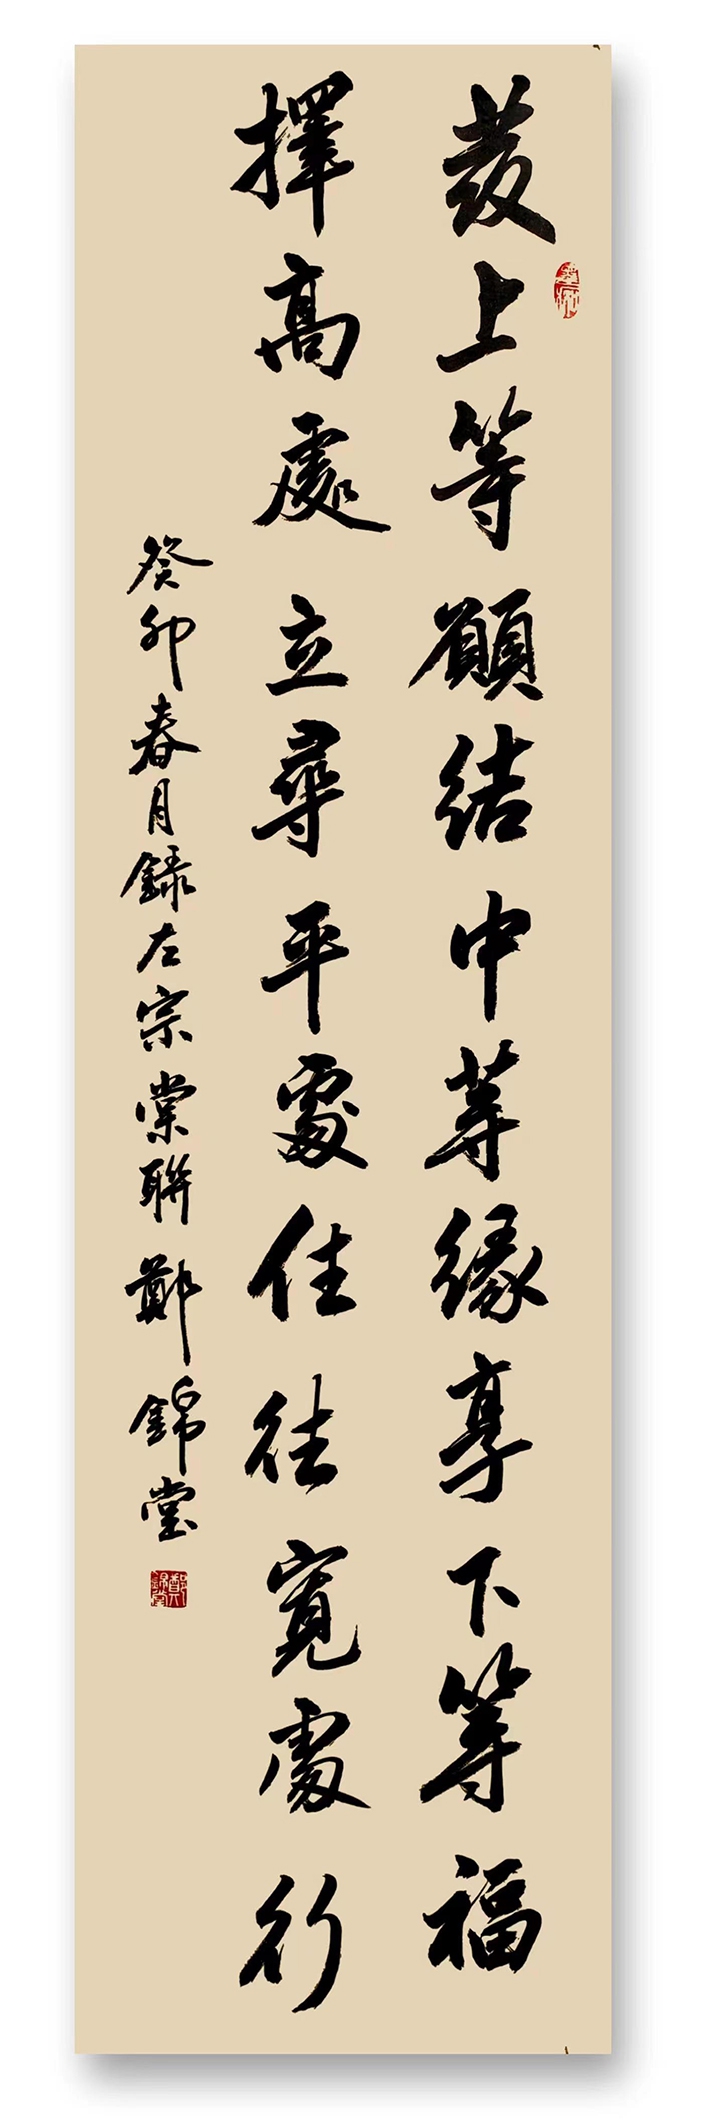 發上等願結中等緣享下等福
擇高處立尋平處住往寬處行
癸卯春月錄左宗棠聯鄭錦堂
鄭錦堂